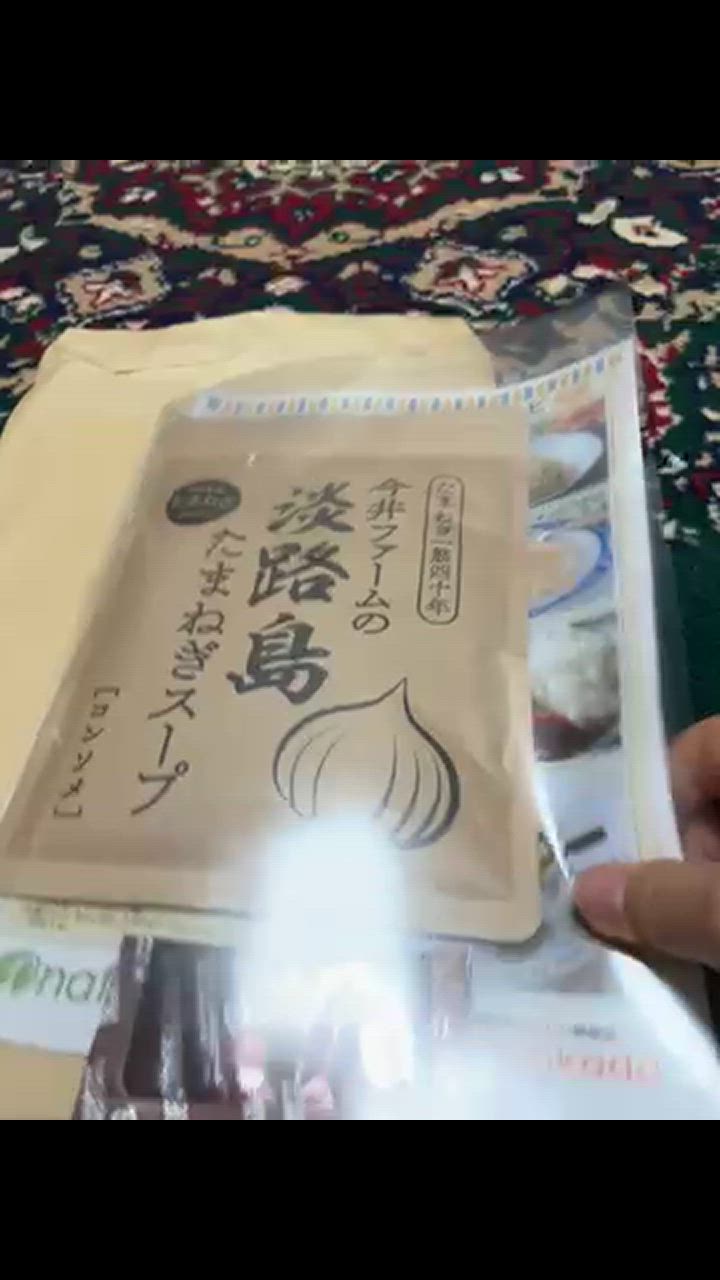 たまねぎ一筋四十年
今井ファームの
淡路島
たまねぎスープ
[コンソメ]